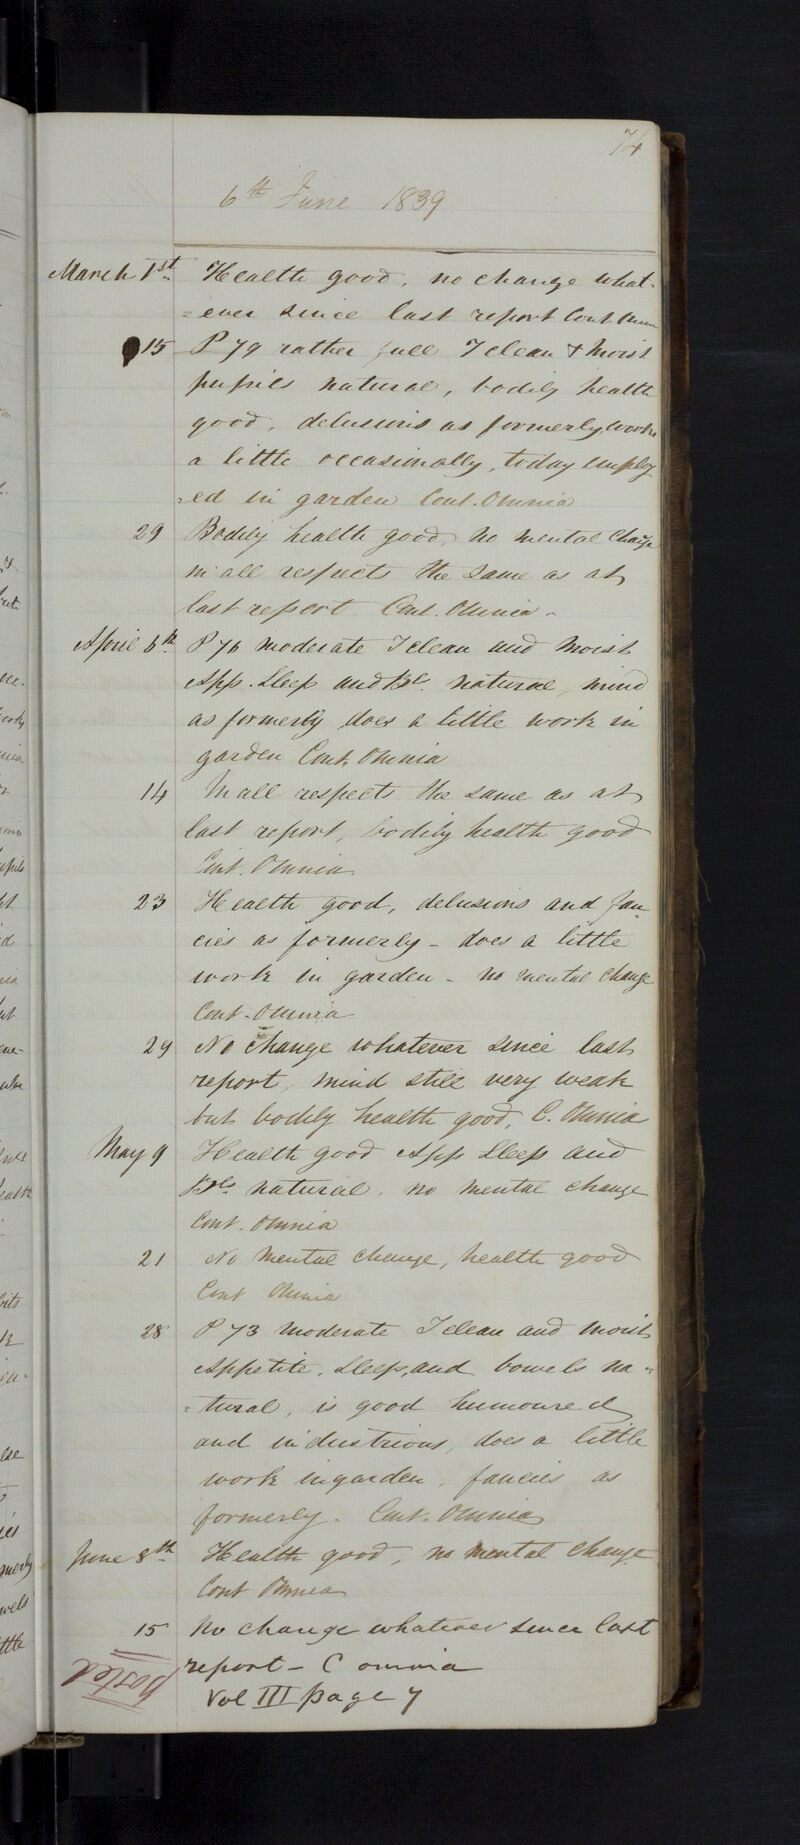 74
6th June 1839
March 1st Health good, no change what-
=ever since last report Cont. Omnia
15 P 79 rather full T clean & moist
pupils natural, bodily health
good, delusions as formerly, works
a little occasionally, today employ
=ed in garden Cont. Omnia
29 Bodily health good, no mental change
in all respects the same as at
last report. Cont. Omnia.
April 6th P 76 moderate T clean and moist
App. Sleep and Bls. natural, mind
as formerly does a little work in
garden Cont. Omnia
14 In all respects the same as at
last report, bodily health good
Cont. Omnia
23 Health good, delusions and fan
cies as formerly - does a little
work in garden - no mental change
Cont. Omnia
29 No change whatever since last
report, mind still very weak
but bodily health good, C. Omnia
May 9 Health good App Sleep and
Bls. natural, no mental change
Cont. Omnia
21 No mental change, health good
Cont Omnia
28 P 73 moderate T clean and moist
Appetite, Sleep, and bowels na=
=tural, is good humoured
and industrious, does a little
work in garden, fancies as
formerly. Cont. Omnia
June 8th Health good, no mental change
Cont Omnia
15 No change whatever since last
report - C omnia
posted
Vol III page 7